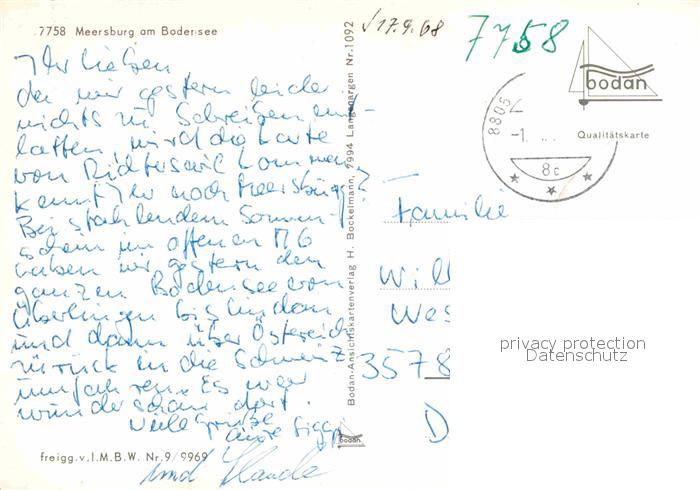 7758 Meersburg am Bodensee
Ihr Lieben
da wir gestern leider
nichts zu Schreiben
hatten, wird die Karte
von Richterswil kommen
kennt Ihr noch Meersburg?
Bei strahlendem Sonnen-
schein im offenen MG
haben wir gestern den
ganzen Bodensee von
Überlingen bis Lindau
und dann über Österreich
zurück in die Schweiz
umfahren. Es war
wunderschön dort.
Viele Grüße
Eure Sigga
und Claude
freigg.v.I.M.B.W. Nr.9/9969
Bodan-Ansichtskartenverlag H. Bockelmann, 7994 Langenargen Nr.1092
bodan
17.9.68
7758
bodan
Qualitätskarte
8805
-1.
8c
Familie
Will
Wes
3578
D
privacy protection
Datenschutz